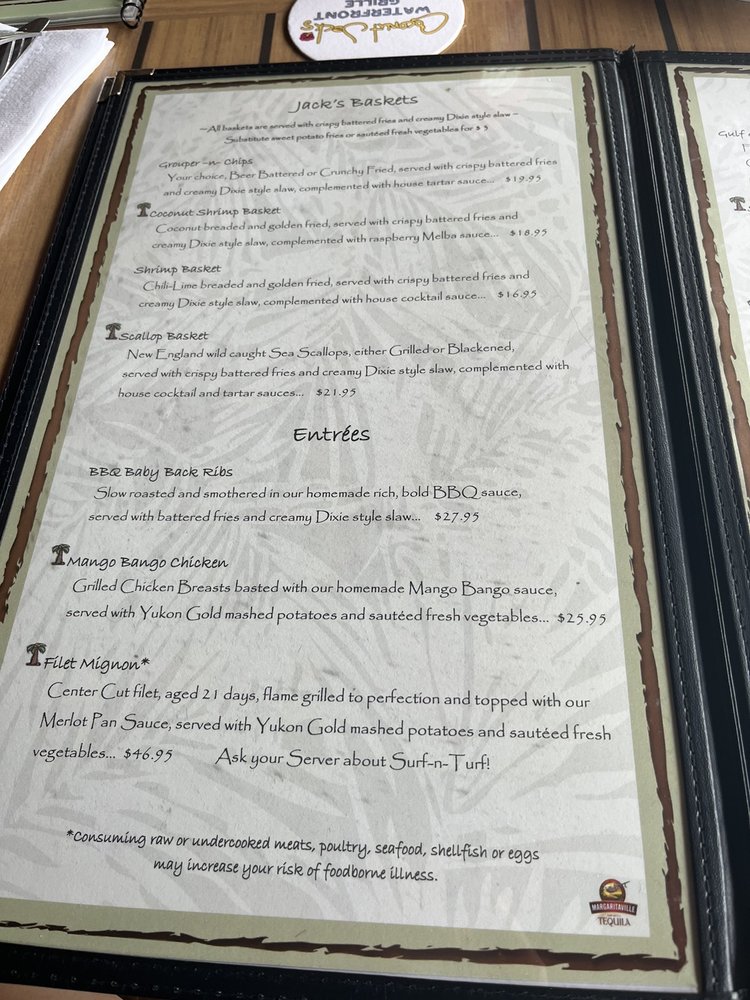 Coconut Jack's
WATERFRONT
GRILLE
Jack's Baskets
~All baskets are served with crispy battered fries and creamy Dixie style slaw ~
Substitute sweet potato fries or sautéed fresh vegetables for $3
Grouper -n- Chips
Your choice, Beer Battered or Crunchy Fried, served with crispy battered fries
and creamy Dixie style slaw, complemented with house tartar sauce... $19.95
Coconut Shrimp Basket
Coconut breaded and golden fried, served with crispy battered fries and
creamy Dixie style slaw, complemented with raspberry Melba sauce... $18.95
Shrimp Basket
Chili-Lime breaded and golden fried, served with crispy battered fries and
creamy Dixie style slaw, complemented with house cocktail sauce... $16.95
Scallop Basket
New England wild caught Sea Scallops, either Grilled or Blackened,
served with crispy battered fries and creamy Dixie style slaw, complemented with
house cocktail and tartar sauces... $21.95
Entrées
BBQ Baby Back Ribs
Slow roasted and smothered in our homemade rich, bold BBQ sauce,
served with battered fries and creamy Dixie style slaw... $27.95
Mango Bango Chicken
Grilled Chicken Breasts basted with our homemade Mango Bango sauce,
served with Yukon Gold mashed potatoes and sautéed fresh vegetables... $25.95
Filet Mignon*
Center Cut filet, aged 21 days, flame grilled to perfection and topped with our
Merlot Pan Sauce, served with Yukon Gold mashed potatoes and sautéed fresh
vegetables... $46.95 Ask your Server about Surf-n-Turf!
*Consuming raw or undercooked meats, poultry, seafood, shellfish or eggs
may increase your risk of foodborne illness.
MARGARITAVILLE
TEQUILA
Gulf